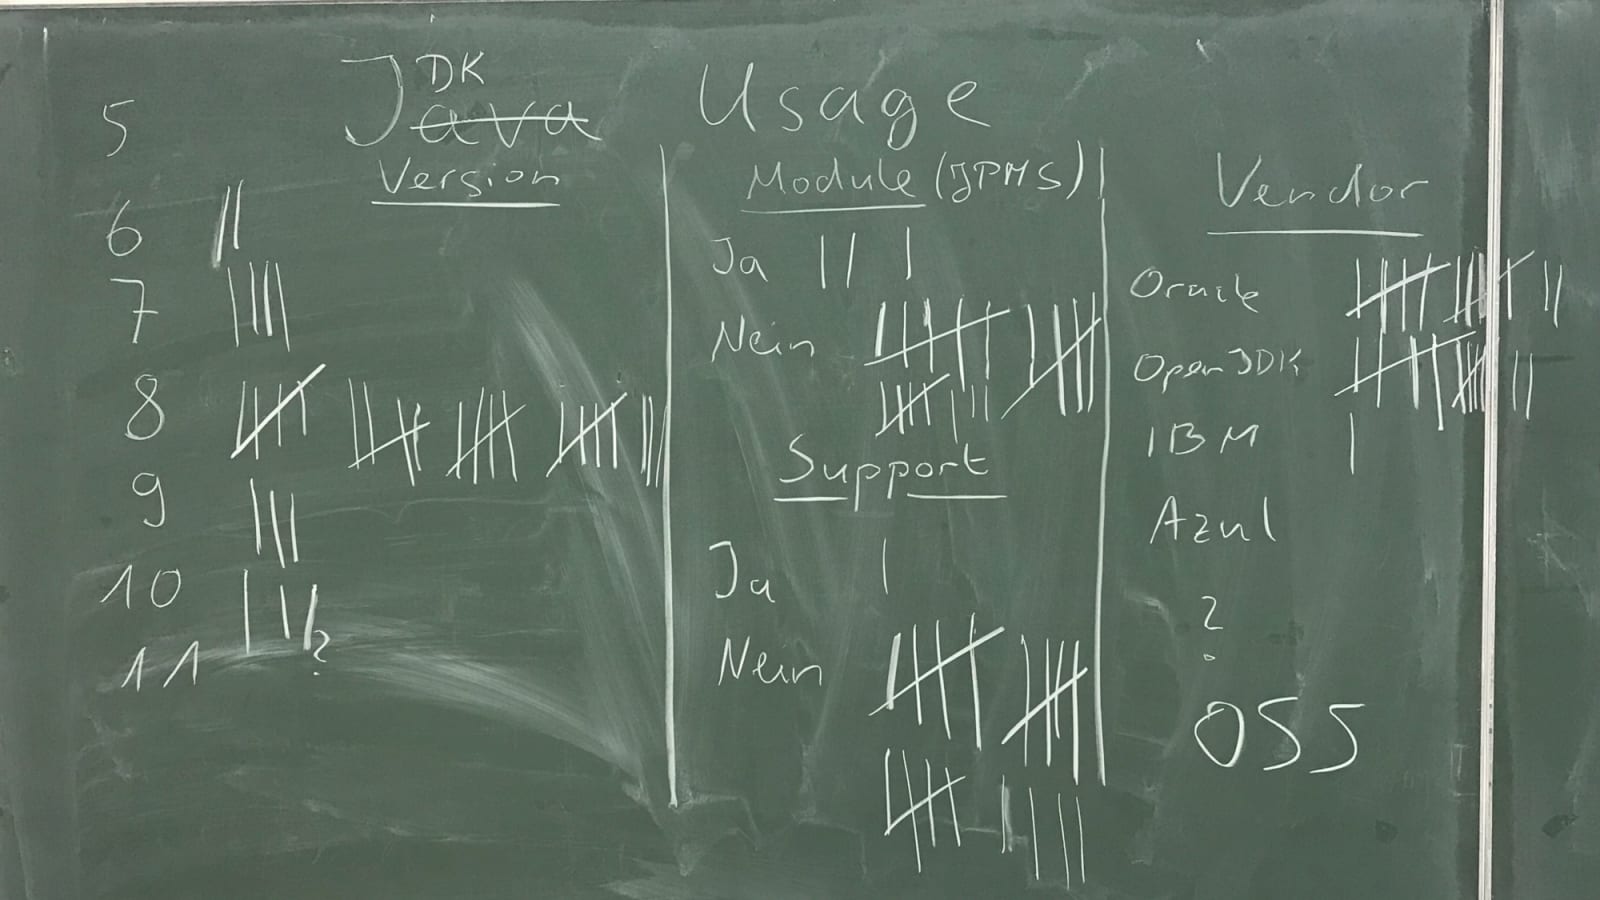 JDK Java Usage
Version
5
6 ||
7 ||||
8 𝍸 𝍸 𝍸 𝍸 |||
9 |||
10 |||
11 ?
Module (JPMS)
Ja || |
Nein 𝍸 𝍸
𝍸 ||||
Support
Ja |
Nein 𝍸 𝍸
𝍸 ||||
Vendor
Oracle 𝍸 𝍸 ||
OpenJDK 𝍸 𝍸 ||
IBM |
Azul
?
OSS